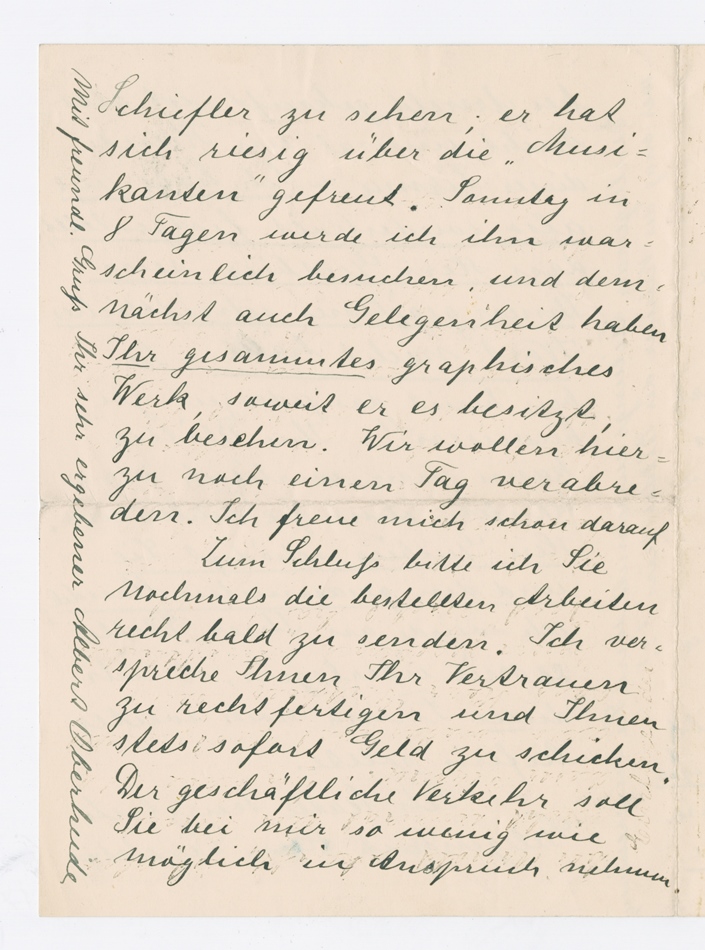 Schiefler zu sehen; er hat
sich riesig über die „Musi=
kanten" gefreut. Sonntag in
8 Tagen werde ich ihn war=
scheinlich besuchen, und dem=
nächst auch Gelegenheit haben
Ihr gesammtes graphisches
Werk, soweit er es besitzt,
zu besehen. Wir wollen hier=
zu noch einen Tag verabre=
den. Ich freue mich schon darauf
Zum Schluß bitte ich Sie
nochmals die bestellten Arbeiten
recht bald zu senden. Ich ver=
spreche Ihnen Ihr Vertrauen
zu rechtfertigen und Ihnen
stets sofort Geld zu schicken.
Der geschäftliche Verkehr soll
Sie bei mir so wenig wie
möglich in Anspruch nehmen.
Mit freundl. Gruß Ihr sehr ergebener Albert